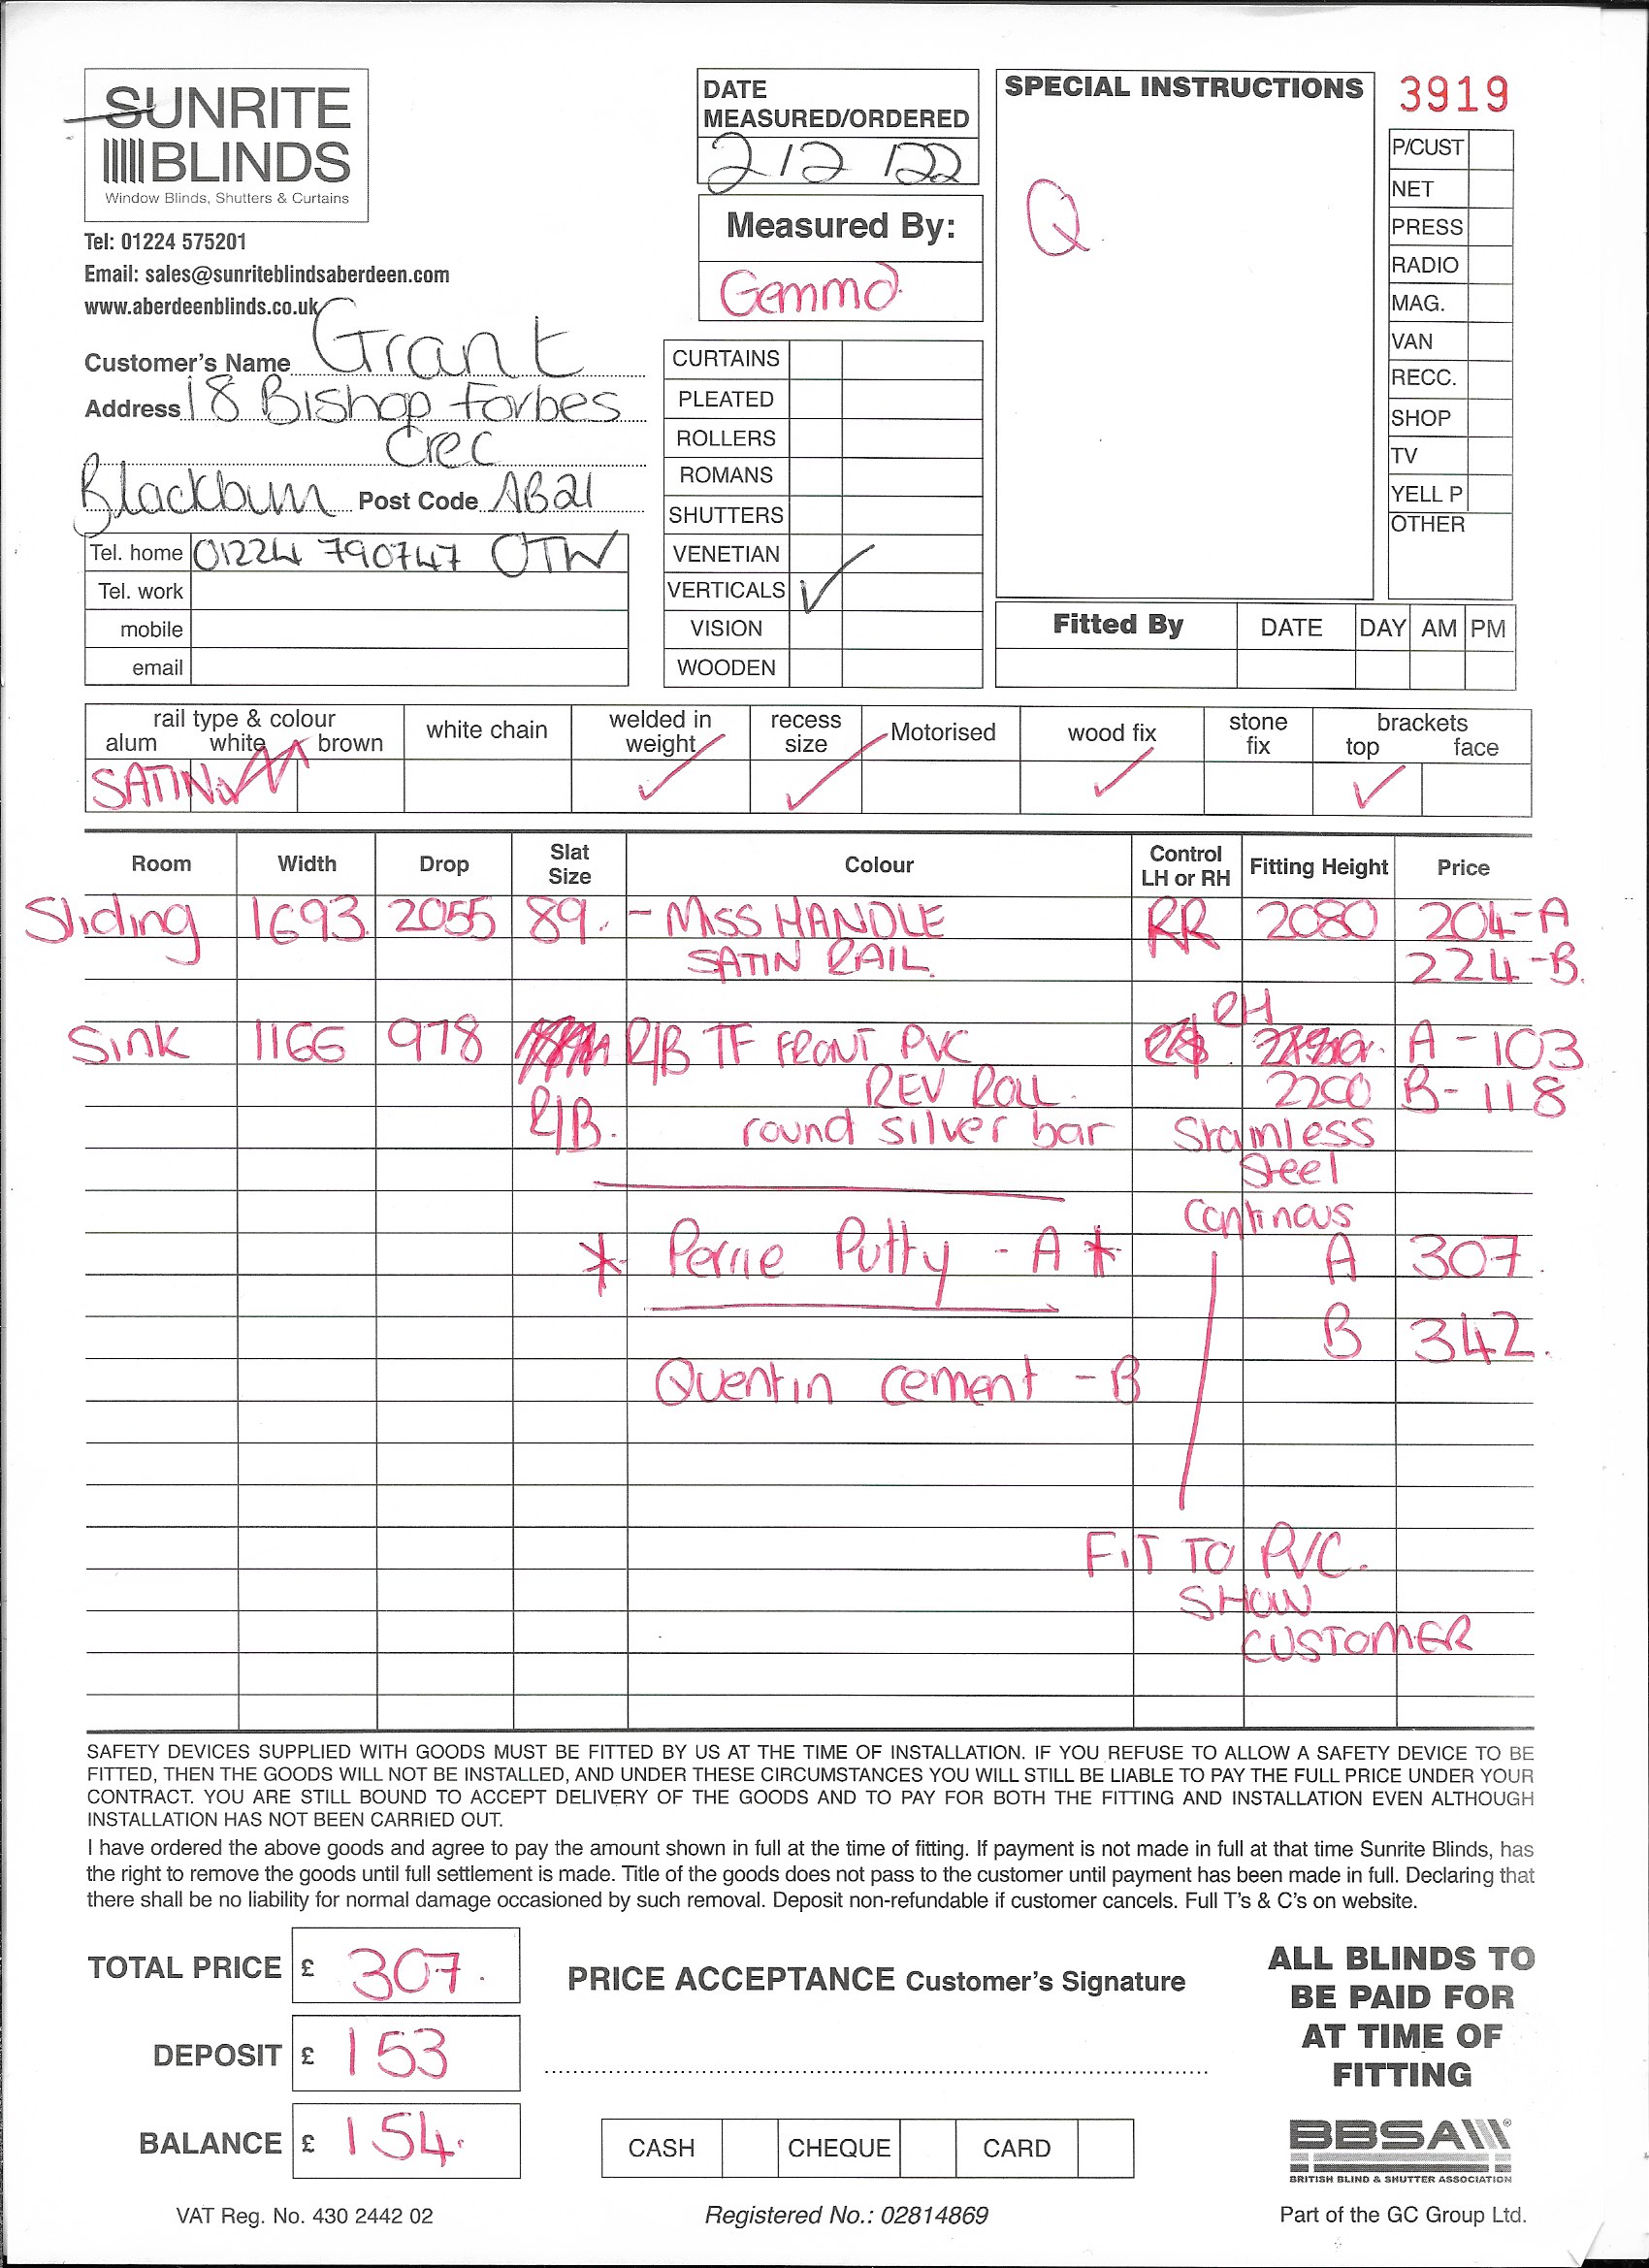 SUNRITE
BLINDS
Window Blinds, Shutters & Curtains
Tel: 01224 575201
Email: sales@sunriteblindsaberdeen.com
www.aberdeenblinds.co.uk
Customer's Name Grant
Address 18 Bishop Forbes
Crec
Blackburn Post Code AB21
Tel. home 01224 790747 OTW
Tel. work
mobile
email
DATE
MEASURED/ORDERED
2/2/22
Measured By:
Gemma
CURTAINS
PLEATED
ROLLERS
ROMANS
SHUTTERS
VENETIAN
VERTICALS ✓
VISION
WOODEN
SPECIAL INSTRUCTIONS
Q
3919
P/CUST
NET
PRESS
RADIO
MAG.
VAN
RECC.
SHOP
TV
YELL P
OTHER
Fitted By DATE DAY AM PM
rail type & colour
alum white brown
white chain
welded in
weight
recess
size
Motorised
wood fix
stone
fix
brackets
top face
SATIN ✓ ✓ ✓ ✓
Room Width Drop Slat Size Colour Control LH or RH Fitting Height Price
Sliding 1693 2055 89. - MISS HANDLE RR 2080 204-A
SATIN RAIL 224-B.
RH
Sink 1166 978 R/B TF FRONT PVC A-103
REV ROLL. 2200 B-118
R/B. round silver bar Stainless
Steel
Continous
* Perrie Putty - A * A 307.
B 342.
Quentin cement - B
FIT TO PVC.
SHOW
CUSTOMER
SAFETY DEVICES SUPPLIED WITH GOODS MUST BE FITTED BY US AT THE TIME OF INSTALLATION. IF YOU REFUSE TO ALLOW A SAFETY DEVICE TO BE
FITTED, THEN THE GOODS WILL NOT BE INSTALLED, AND UNDER THESE CIRCUMSTANCES YOU WILL STILL BE LIABLE TO PAY THE FULL PRICE UNDER YOUR
CONTRACT. YOU ARE STILL BOUND TO ACCEPT DELIVERY OF THE GOODS AND TO PAY FOR BOTH THE FITTING AND INSTALLATION EVEN ALTHOUGH
INSTALLATION HAS NOT BEEN CARRIED OUT.
I have ordered the above goods and agree to pay the amount shown in full at the time of fitting. If payment is not made in full at that time Sunrite Blinds, has
the right to remove the goods until full settlement is made. Title of the goods does not pass to the customer until payment has been made in full. Declaring that
there shall be no liability for normal damage occasioned by such removal. Deposit non-refundable if customer cancels. Full T's & C's on website.
TOTAL PRICE £ 307.
DEPOSIT £ 153
BALANCE £ 154.
PRICE ACCEPTANCE Customer's Signature
CASH CHEQUE CARD
ALL BLINDS TO
BE PAID FOR
AT TIME OF
FITTING
BBSA
BRITISH BLIND & SHUTTER ASSOCIATION
VAT Reg. No. 430 2442 02
Registered No.: 02814869
Part of the GC Group Ltd.